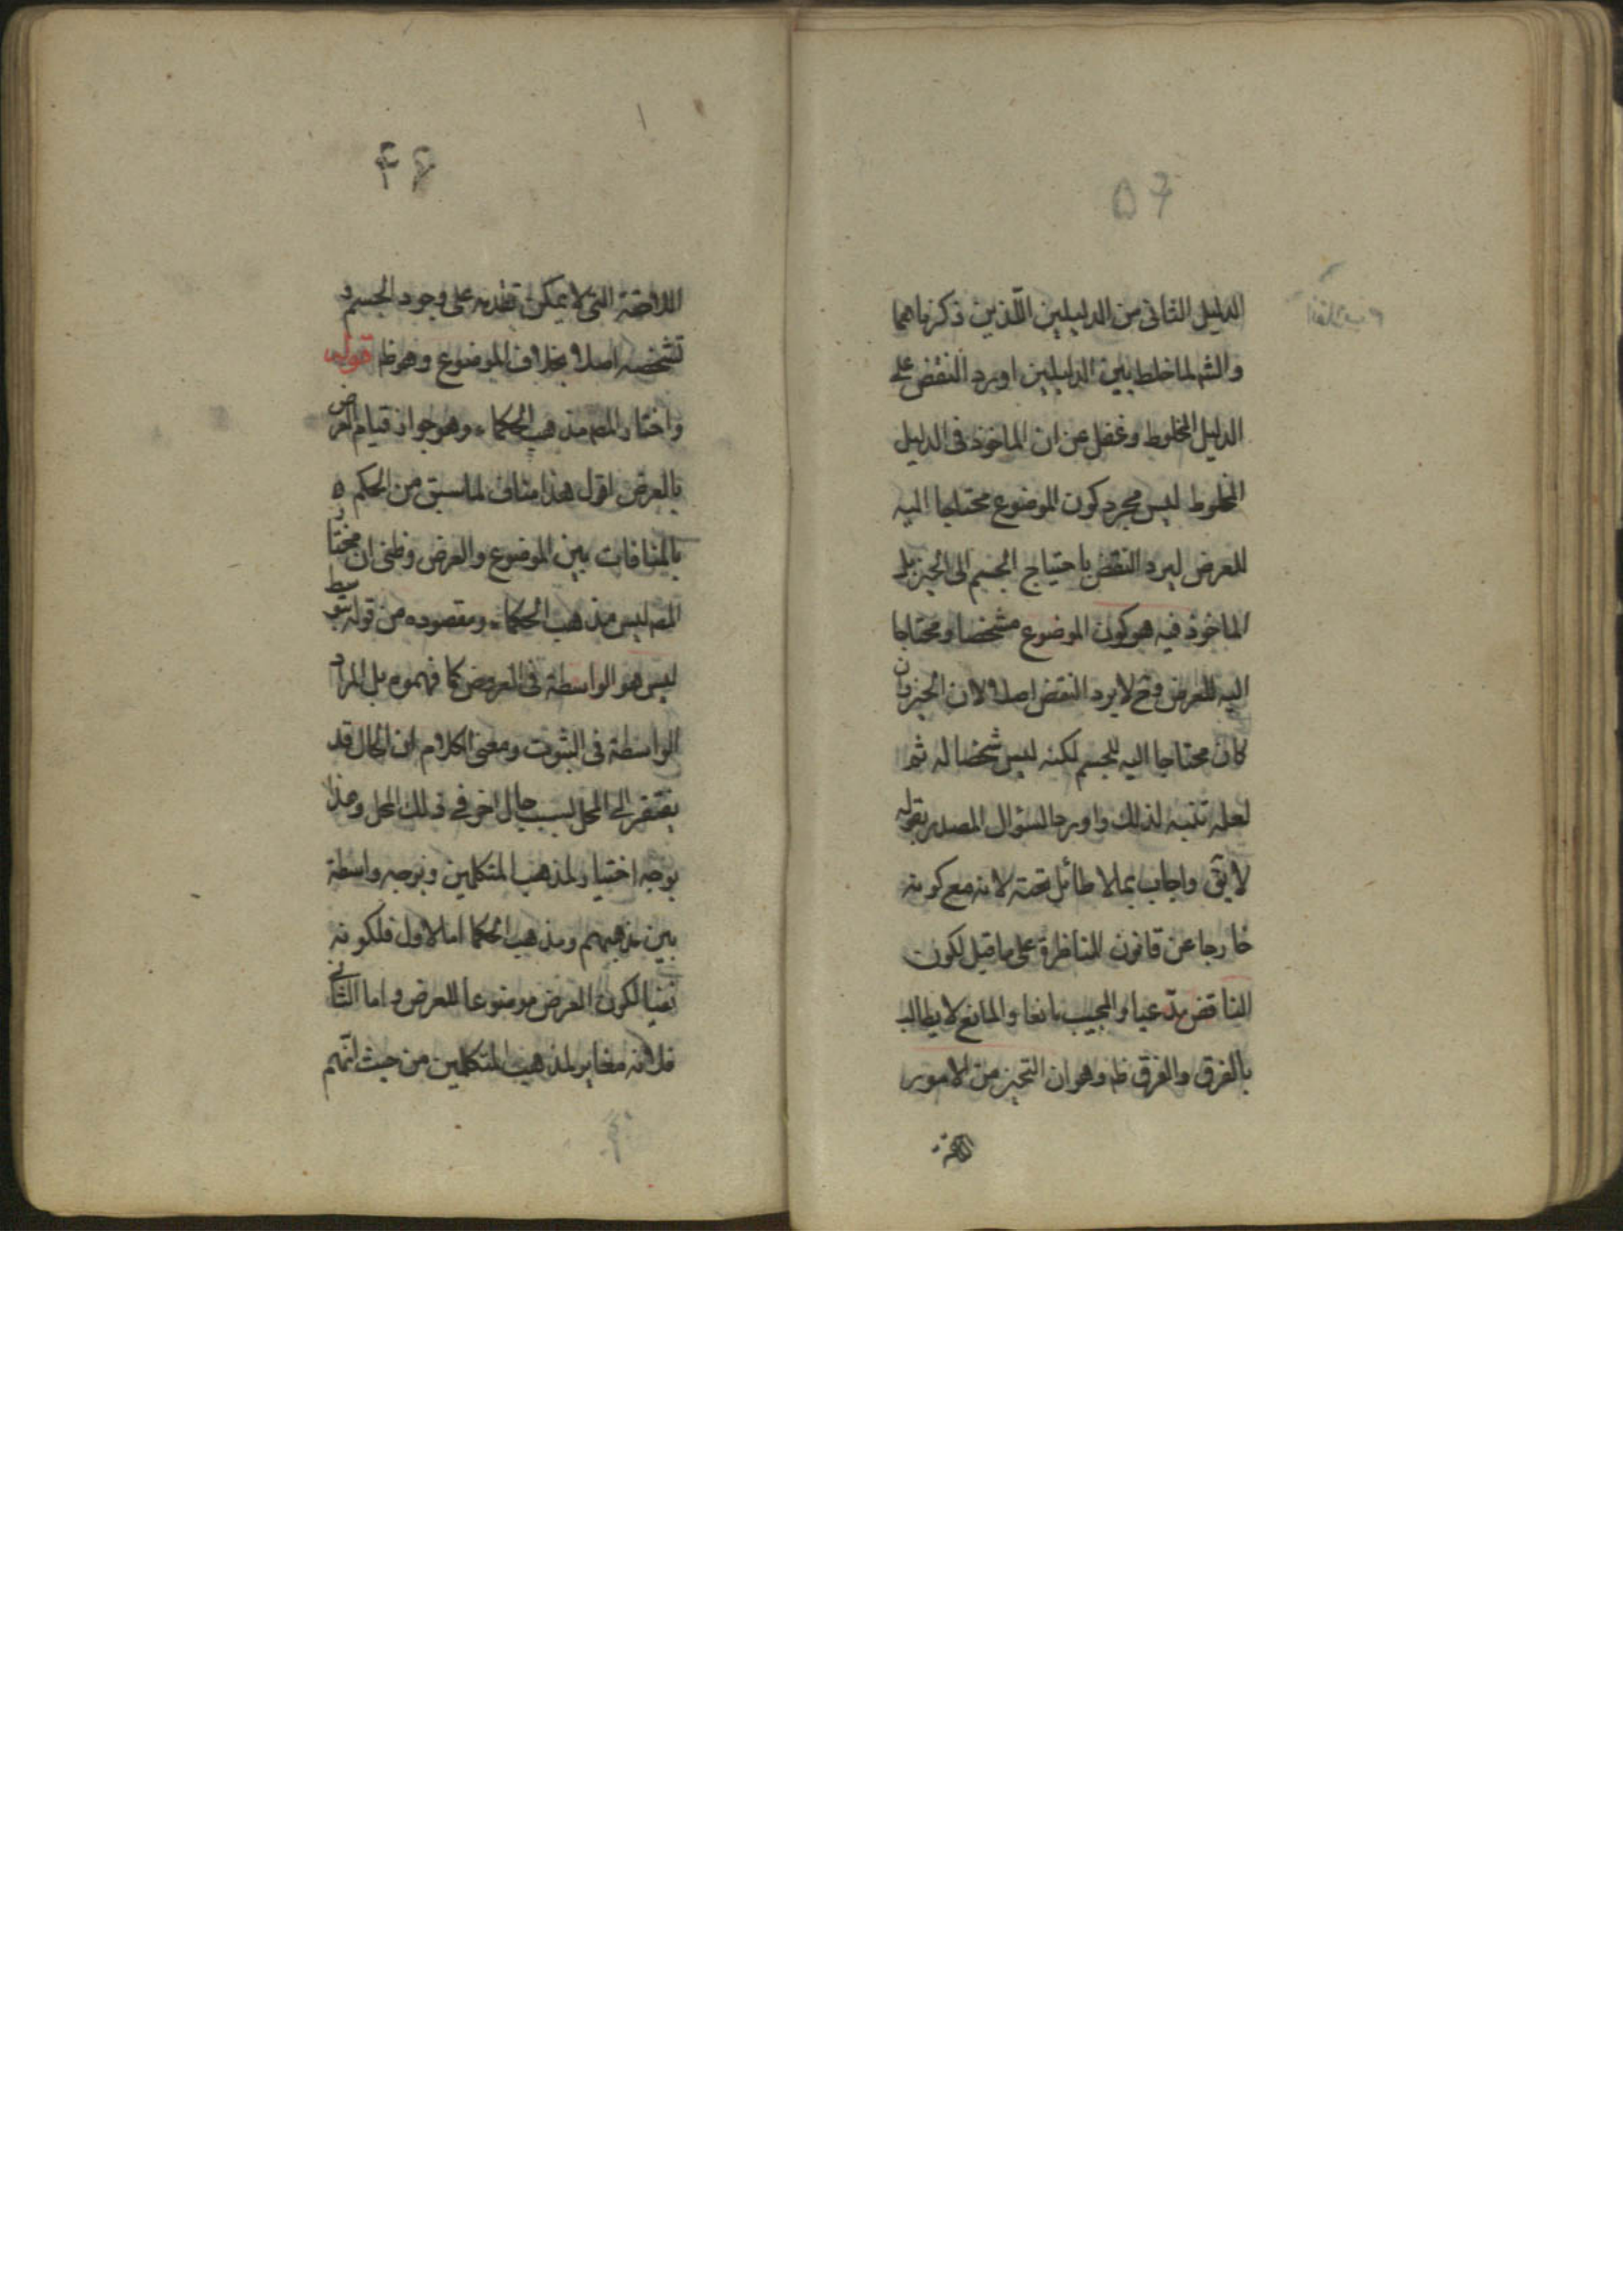 ۵۶
الدليل الثانى من الدليلين اللّذين ذكرناهما
والشم لما خلط بين الدليلين اورد النقض على
الدليل المخلوط وغفل عن ان الماخوذ فى الدليل
المخلوط ليس مجرد كون الموضوع محتاجا اليه
للعرض ليرد النقض باحتياج الجسم الى الحيز بل
الماخوذ فيه هو كون الموضوع مشخصا ومحتاجا
اليه للعرض وح لا يرد النقض اصلا لان الحيز وان
كان محتاجا اليه للجسم لكنه ليس مشخصا له ثم
لعله تنبه لذلك واورد السؤال المصدر بقوله
لا يق واجاب بما لا طائل تحته لانه مع كونه
خارجا عن قانون المناظرة على ما قيل لكون
الناقض مدّعيا والمجيب مانعا والمانع لا يطالب
بالفرق والفرق ظ وهو ان التحيز من الامور
اللاحقة
۴۶
اللاحقة التى لا يمكن تقدمه على وجود الجسم و
تشخصه اصلا بخلاف الموضوع وهو ظ قوله
واختار المصه مذهب الحكماء وهو جواز قيام العرض
بالعرض اقول هذا مناف لما سبق من الحكم ه
بالمنافات بين الموضوع والعرض وظنى ان مختار
المصه ليس مذهب الحكماء ومقصوده من قوله بتوسط
ليس هو الواسطة فى العروض كما فهموه بل المراد
الواسطة فى الثبوت ومعنى الكلام ان الحال قد
يفتقر الى المحل لسبب حال اخر فى ذلك المحل وهذا
بوجه اختيار لمذهب المتكلمين وبوجه واسطة
بين مذهبهم ومذهب الحكما اما الاول فلكونه
نفيا لكون العرض موضوعا للعرض واما الثانى
فلانه مغاير لمذهب المتكلمين من حيث انهم